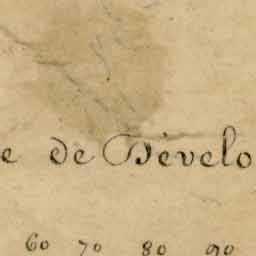 e de Dévelo
60 70 80 90